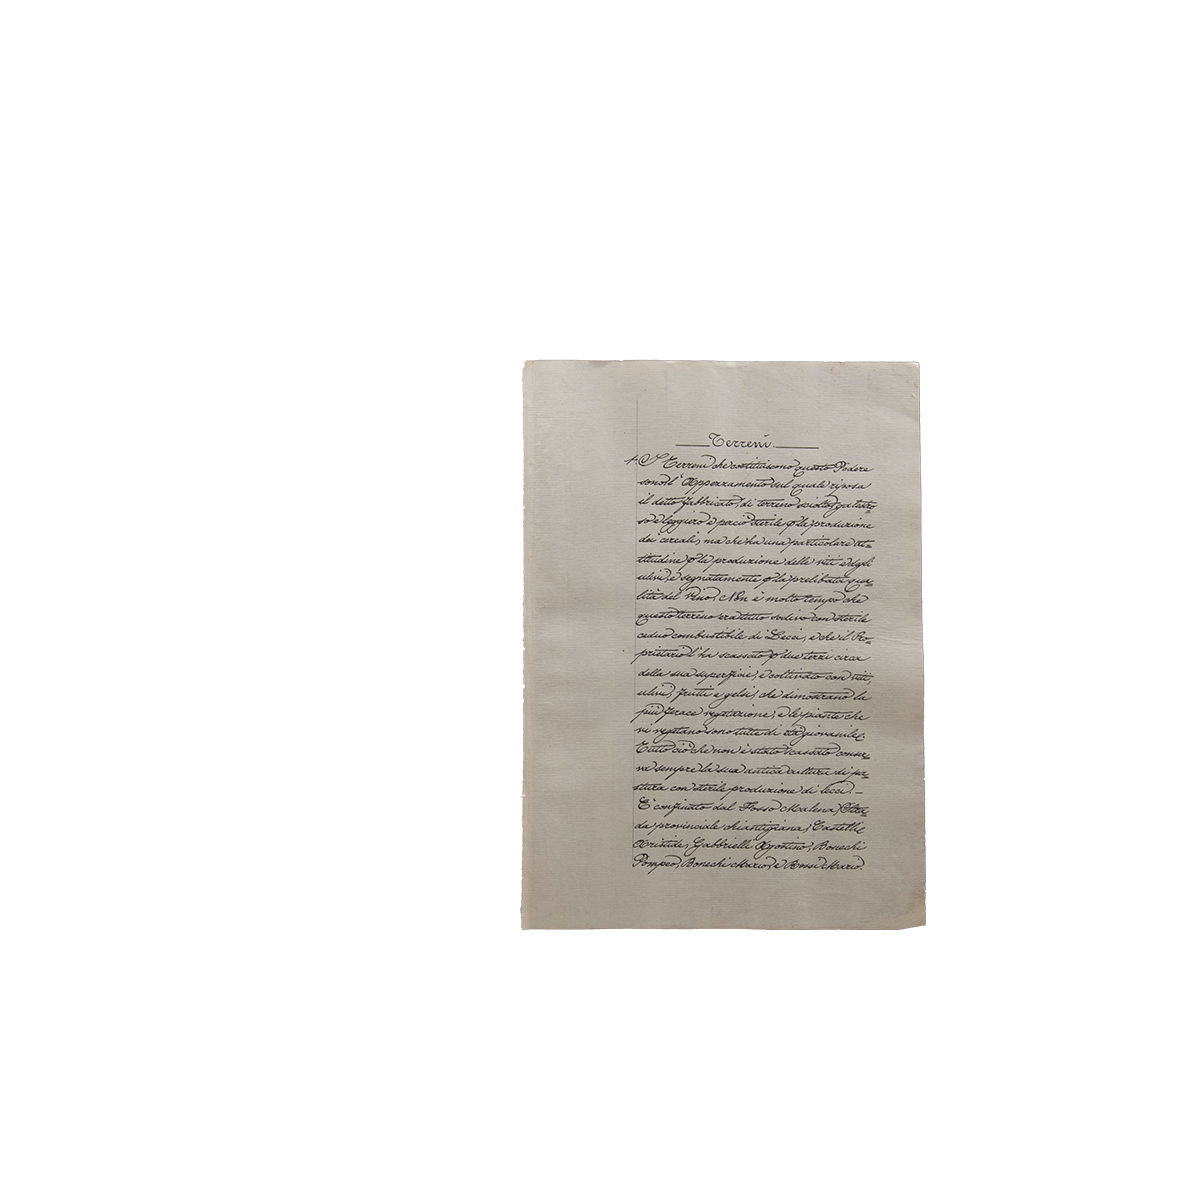 Terreni.
1. I Terreni che costituiscono questo Podere
sono: l'Appezzamento sul quale riposa
il detto fabbricato, di terreno sciolto, galestro=
so e leggiero e perciò sterile p la produzione
dei cereali, ma che ha una particolare at=
titudine p la produzione delle viti e degli
ulivi, e segnatamente p la prelibata qua=
lità del vino. Non è molto tempo che
questo terreno era tutto sodivo con sterile
ceduo combustibile di Lecci, e che il Pro=
prietario l'ha scassato p due terzi circa
della sua superficie, e coltivato con viti,
ulivi, frutti e gelsi, che dimostrano la
più ferace vegetazione, e le piante che
vi vegetano sono tutte di età giovanile.
Tutto ciò che non è stato scassato conser=
va sempre la sua antica cultura di pa=
stura con sterile produzione di lecci. —
E' confinato dal Fosso Malena, Stra=
da provinciale chiantigiana, Castelli
Aristide, Gabbrielli Agostino, Bonechi
Pompeo, Bonechi Mario, e Rossi Mario.